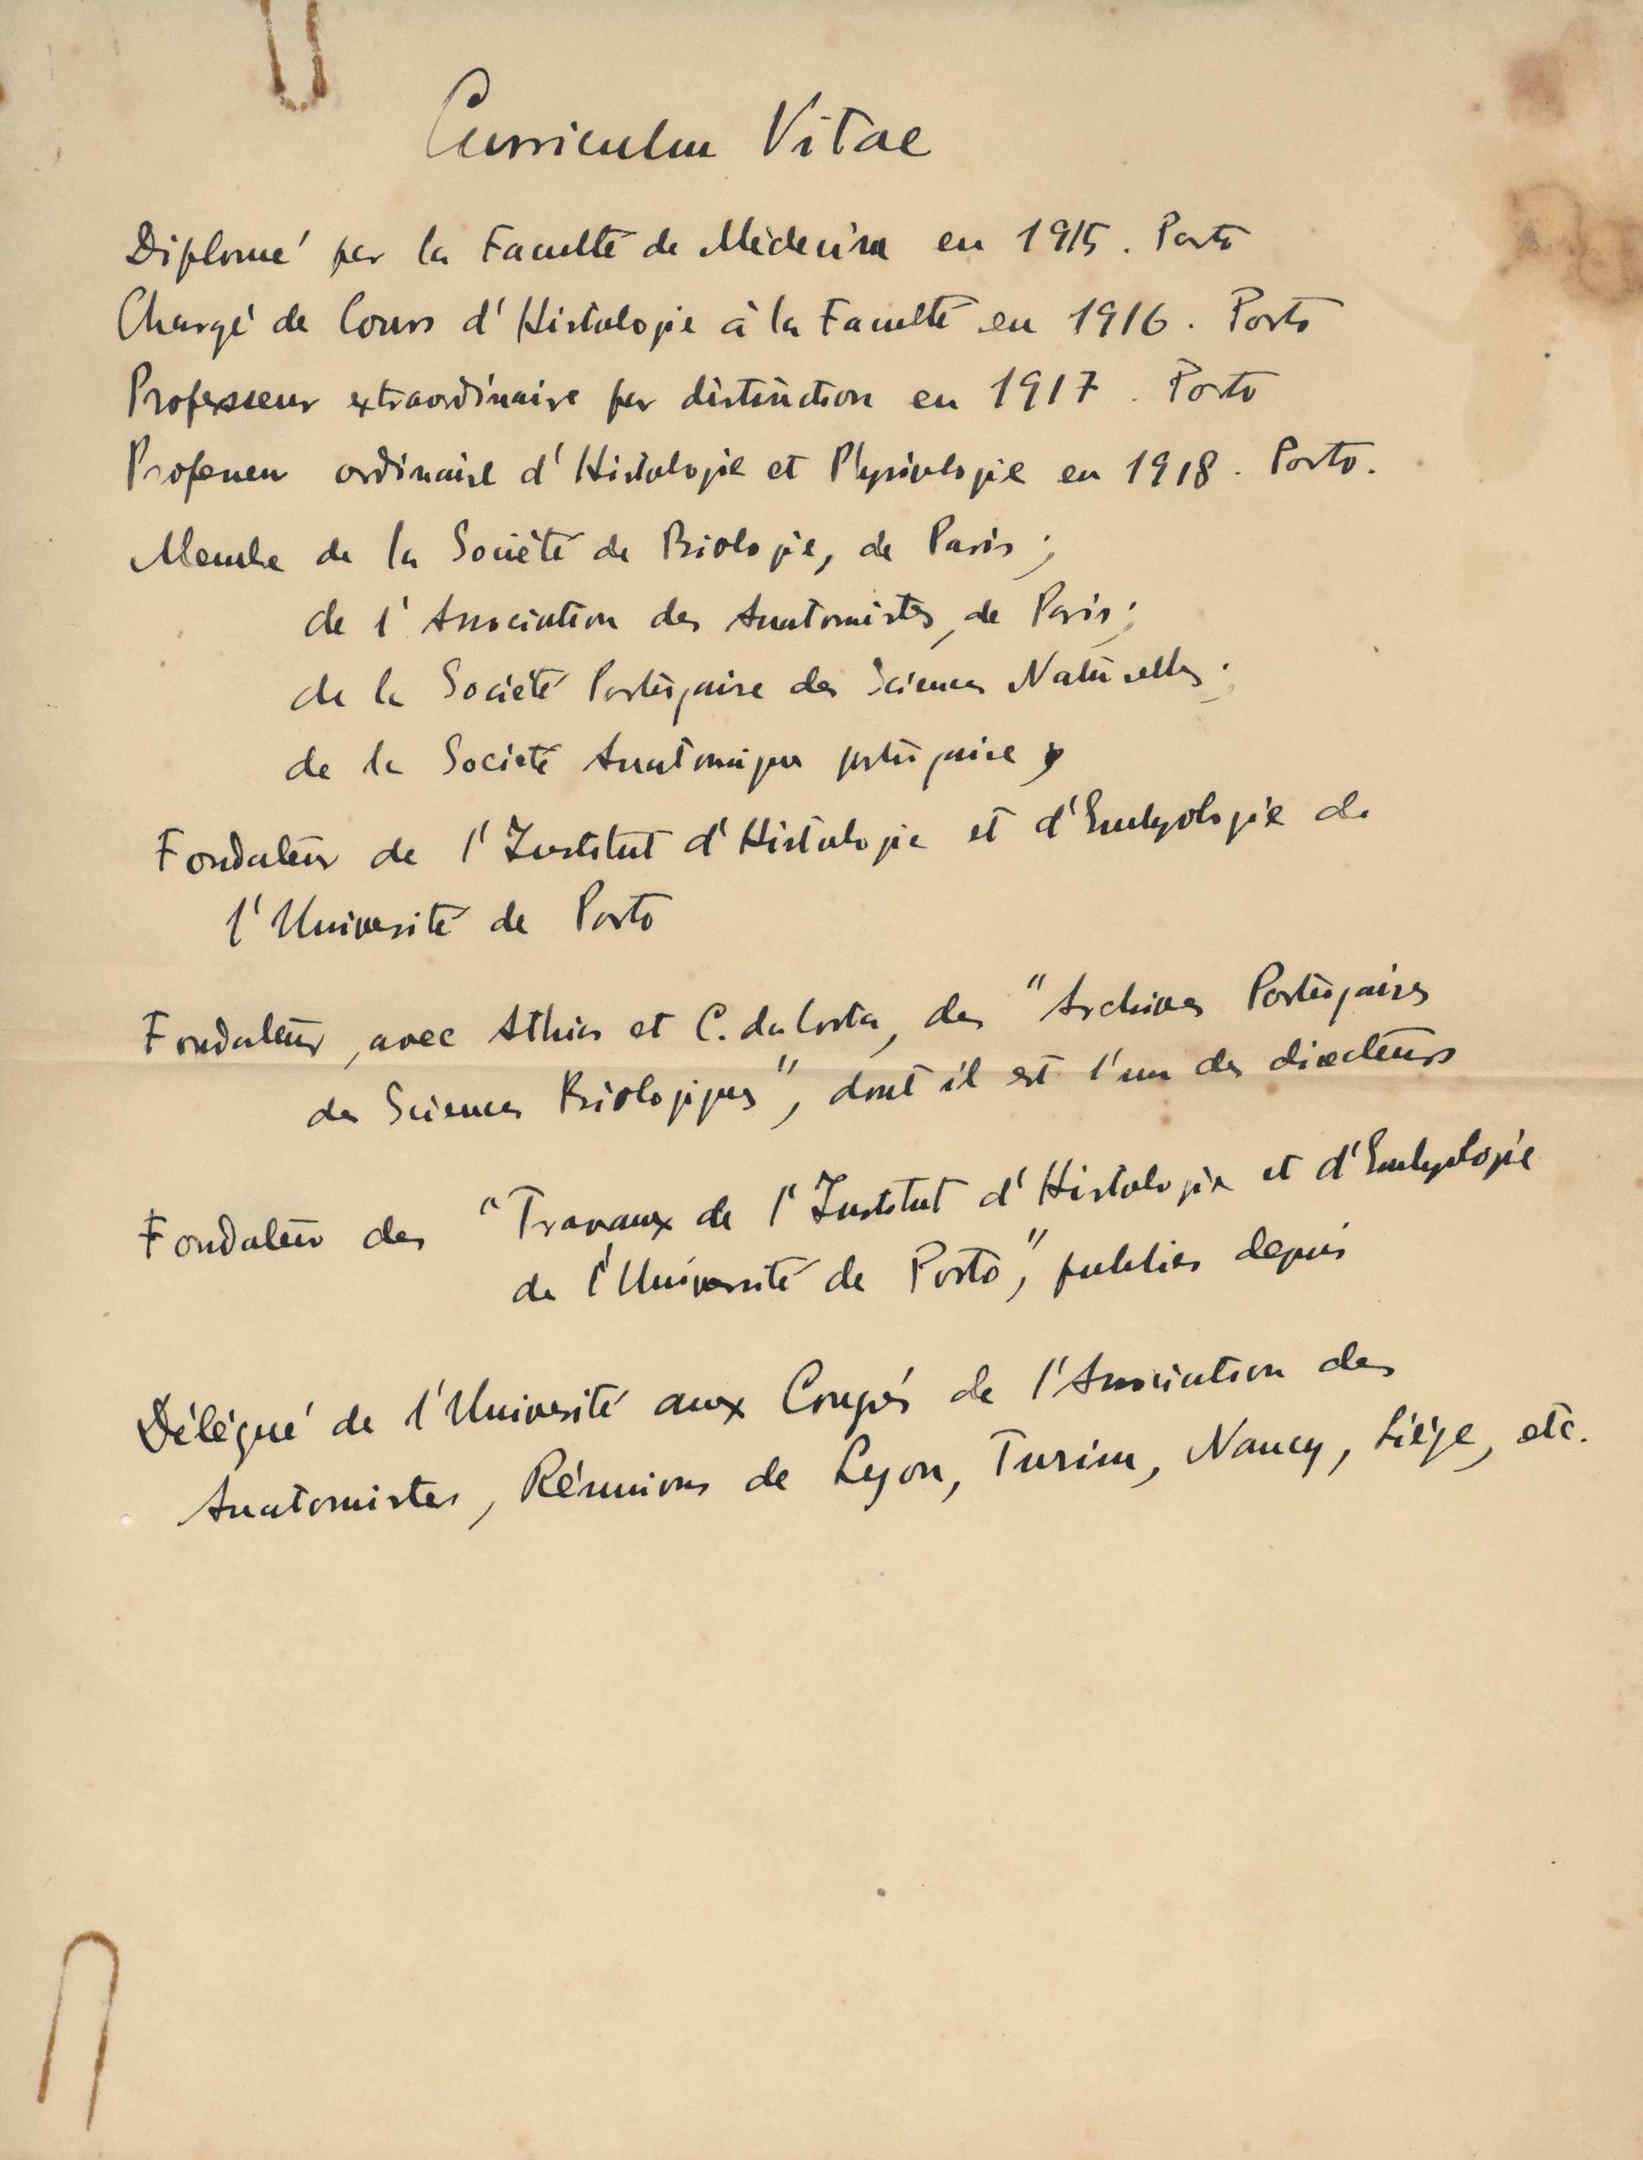 Curriculum Vitae
Diplomé par la Faculté de Médecine en 1915. Porto
Chargé de Cours d'Histologie à la Faculté en 1916. Porto
Professeur extraordinaire par distinction en 1917. Porto
Professeur ordinaire d'Histologie et Physiologie en 1918. Porto.
Membre de la Société de Biologie, de Paris;
de l'Association des Anatomistes, de Paris;
de la Société Portugaise des Sciences Naturelles;
de la Société Anatomique portugaise
Fondateur de l'Institut d'Histologie et d'Embryologie de
l'Université de Porto
Fondateur, avec Athias et C. da Costa, des "Archives Portugaises
des Sciences Biologiques", dont il est l'un des directeurs
Fondateur des "Travaux de l'Institut d'Histologie et d'Embryologie
de l'Université de Porto", publiés depuis
Délégué de l'Université aux Congrés de l'Association des
Anatomistes, Réunions de Lyon, Turin, Nancy, Liége, etc.